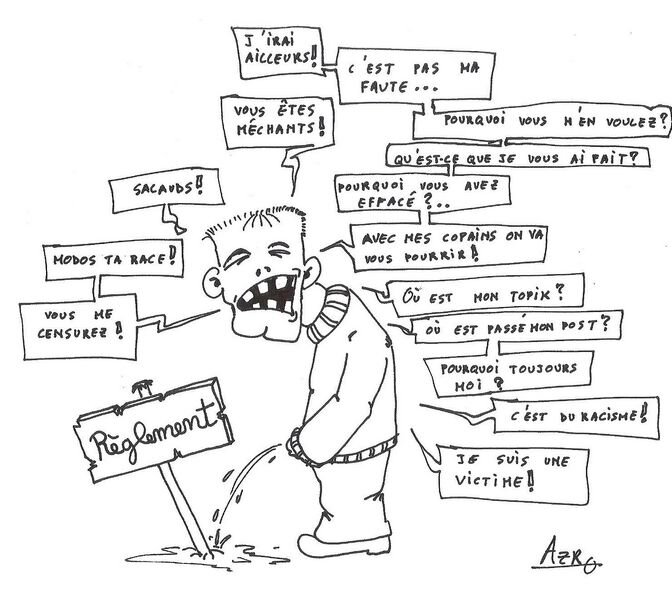 J'IRAI
AILLEURS!!
C'EST PAS MA
FAUTE...
VOUS ÊTES
MÉCHANTS!
POURQUOI VOUS M'EN VOULEZ?
QU'EST-CE QUE JE VOUS AI FAIT?
SALAUDS!
POURQUOI VOUS AVEZ
EFFACÉ?..
AVEC MES COPAINS ON VA
VOUS POURRIR!
MODOS TA RACE!
VOUS ME
CENSUREZ!
OÙ EST MON TOPIK?
OÙ EST PASSÉ MON POST?
POURQUOI TOUJOURS
MOI?
C'EST DU RACISME!
JE SUIS UNE
VICTIME!
Règlement
AZRO